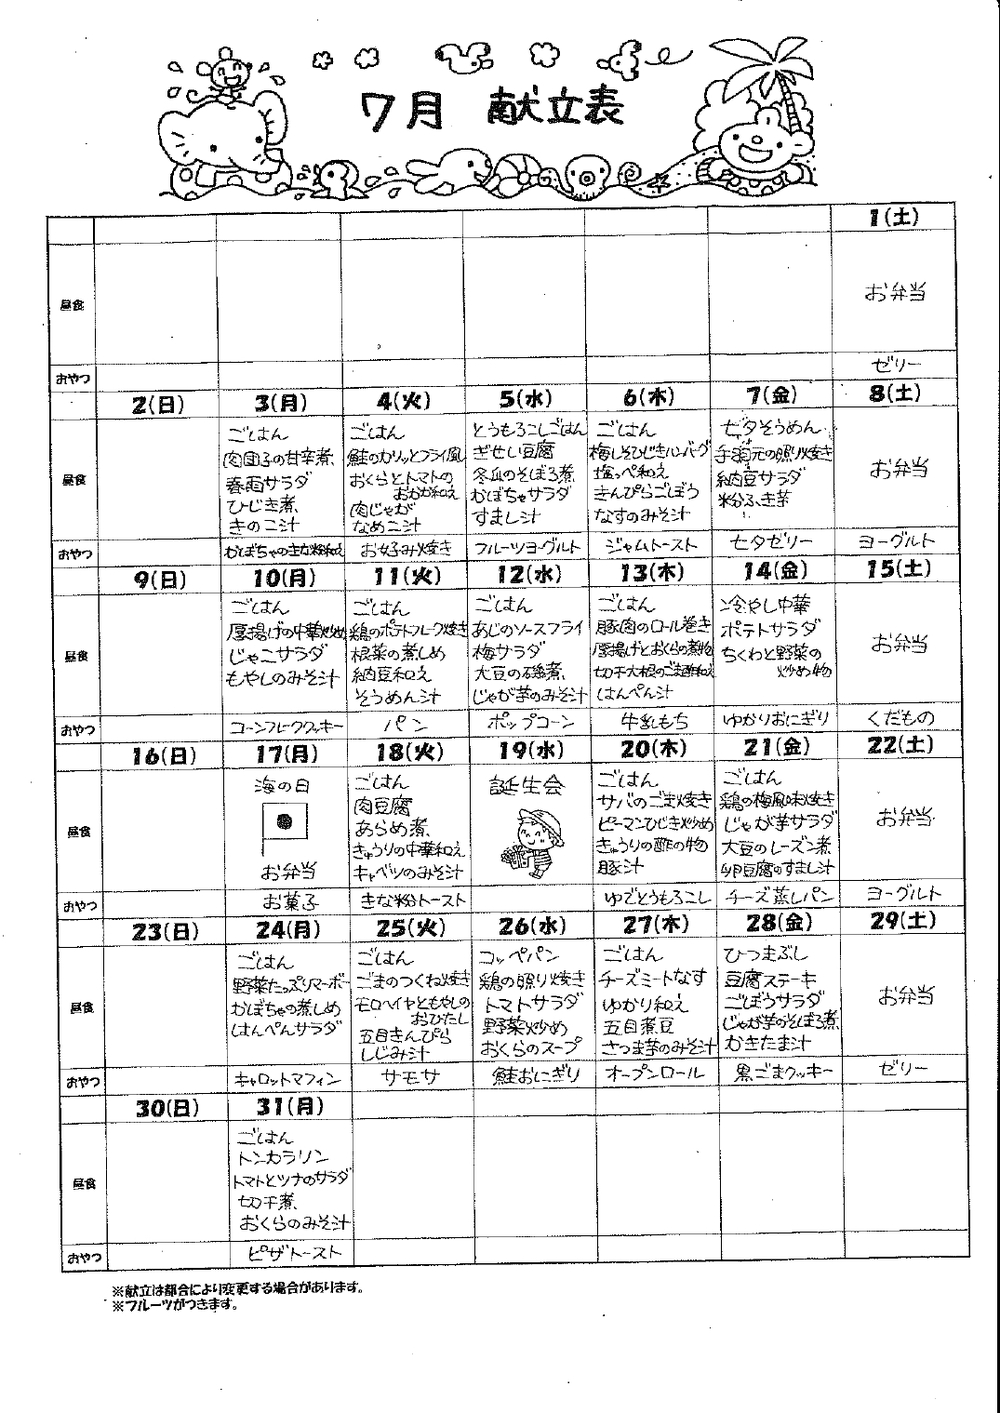 7月 献立表
1(土)
昼食
お弁当
おやつ
ゼリー
2(日) 3(月) 4(火) 5(水) 6(木) 7(金) 8(土)
昼食
ごはん
肉団子の甘辛煮
春雨サラダ
ひじき煮
きのこ汁
ごはん
鮭のカリッとフライ風
おくらとトマトの
おかか和え
肉じゃが
なめこ汁
とうもろこしごはん
ぎせい豆腐
冬瓜のそぼろ煮
かぼちゃサラダ
すまし汁
ごはん
梅しそひじきハンバーグ
塩っぺ和え
きんぴらごぼう
なすのみそ汁
七夕そうめん
手羽元の照り焼き
納豆サラダ
粉ふき芋
お弁当
おやつ
かぼちゃのきな粉和え
お好み焼き
フルーツヨーグルト
ジャムトースト
七夕ゼリー
ヨーグルト
9(日) 10(月) 11(火) 12(水) 13(木) 14(金) 15(土)
昼食
ごはん
厚揚げの中華炒め
じゃこサラダ
もやしのみそ汁
ごはん
鶏のポテトフレーク焼き
根菜の煮しめ
納豆和え
そうめん汁
ごはん
あじのソースフライ
梅サラダ
大豆の磯煮
じゃが芋のみそ汁
ごはん
豚肉のロール巻き
厚揚げとおくらの煮物
切干大根のごま酢和え
はんぺん汁
冷やし中華
ポテトサラダ
ちくわと野菜の
炒め物
お弁当
おやつ
コーンフレーククッキー
パン
ポップコーン
牛乳もち
ゆかりおにぎり
くだもの
16(日) 17(月) 18(火) 19(水) 20(木) 21(金) 22(土)
昼食
海の日
お弁当
ごはん
肉豆腐
あらめ煮
きゅうりの中華和え
キャベツのみそ汁
誕生会
ごはん
サバのごま焼き
ピーマンひじき炒め
きゅうりの酢の物
豚汁
ごはん
鶏の梅風味焼き
じゃが芋サラダ
大豆のレーズン煮
卵豆腐のすまし汁
お弁当
おやつ
お菓子
きな粉トースト
ゆでとうもろこし
チーズ蒸しパン
ヨーグルト
23(日) 24(月) 25(火) 26(水) 27(木) 28(金) 29(土)
昼食
ごはん
野菜たっぷりマーボー
かぼちゃの煮しめ
はんぺんサラダ
ごはん
ごまのつくね焼き
モロヘイヤともやしの
おひたし
五目きんぴら
しじみ汁
コッペパン
鶏の照り焼き
トマトサラダ
野菜炒め
おくらのスープ
ごはん
チーズミートなす
ゆかり和え
五目煮豆
さつま芋のみそ汁
ひつまぶし
豆腐ステーキ
ごぼうサラダ
じゃが芋のそぼろ煮
かきたま汁
お弁当
おやつ
キャロットマフィン
サモサ
鮭おにぎり
オープンロール
黒ごまクッキー
ゼリー
30(日) 31(月)
昼食
ごはん
トンカラリン
トマトとツナのサラダ
切干煮
おくらのみそ汁
おやつ
ピザトースト
※献立は都合により変更する場合があります。
※フルーツがつきます。